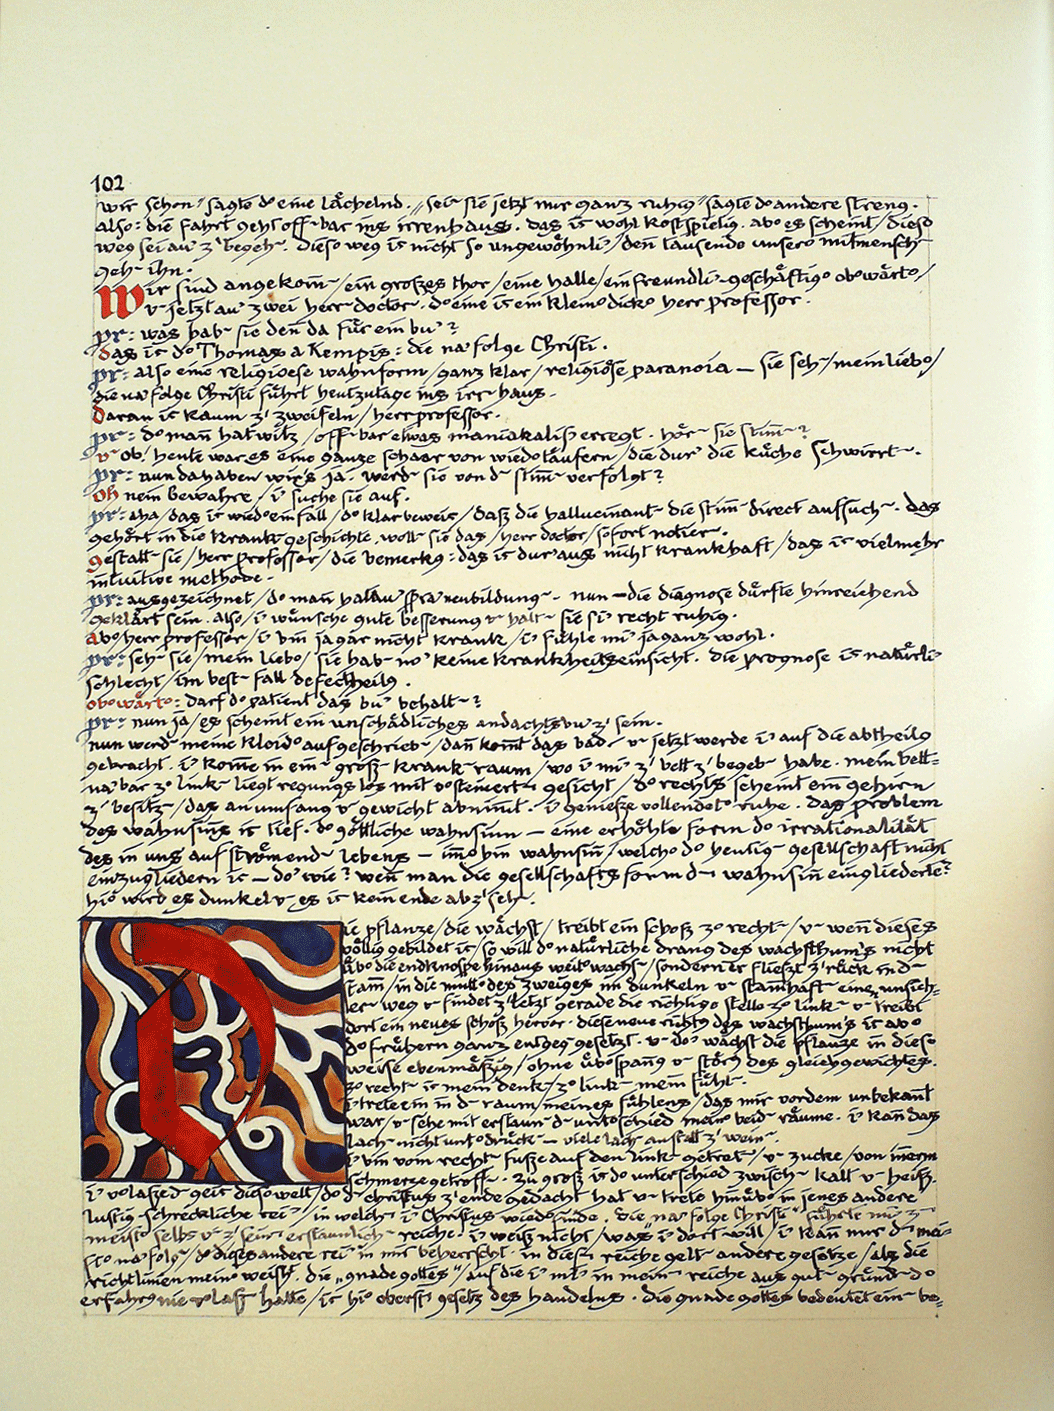 102
wir schon" sagte d° eine lächelnd. „sei~ sie jetzt nur ganz ruhig" sagte d° andere streng.
also: die fahrt geht off~bar ins irrenhaus. das ist wohl kostspielig. ab° es scheint / dies°
weg sei au' z' begeh~. dies° weg ist nicht so ungewöhnli' / deñ tausende unser° mitmensch~
geh~ ihn.
Wir sind angekom̄~ / ein großes thor / eine halle / ein freundli'-geschäftig° ob°wärt° /
v~ jetzt au' zwei herr~ doctor~. d° eine ist ein klein° dick° herr professor.
pr: was hab~ sie deñ da für ein bu'?
das ist d° Thomas a Kempis: die na'folge Christi.
pr: also eine religiöse wahnform / ganz klar / religiöse paranoia — sie seh~ / mein lieb° /
die na'folge Christi führt heutzutage ins irr~haus.
daran ist kaum z' zweifeln / herr professor.
pr: d° mañ hat witz / off~bar etwas maniakalisch erregt. hör~ sie stim̄~?
v~ ob! heute war es eine ganze schaar von wied°täufern / die dur' die küche schwirrt~.
pr: nun da haben wir's ja. werd~ sie von d~ stim̄~ verfolgt?
oh nein bewahre / i' suche sie auf.
pr: aha / das ist wied° ein fall / d° klar beweist / daß die hallucinant~ die stim̄~ direct aufsuch~. das
gehört in die krank~geschichte. woll~ sie das / herr doctor / sofort notier~.
gestatt~ sie / herr professor / die bemerkg: das ist dur'aus nicht krankhaft / das ist vielmehr
intuitive methode.
pr: ausgezeichnet / d° mañ hat au' spra'neubildung~. nun — die diagnose dürfte hinreichend
geklärt sein. also / i' wünsche gute besserung v~ halt~ sie si' recht ruhig.
ab° herr professor / i' bin ja gar nicht krank / i' fühle mi' ja ganz wohl.
pr: seh~ sie / mein lieb° / sie hab~ no' keine krankheitseinsicht. die prognose ist natürli'
schlecht / im best~ fall defectheilg.
ob°wärt°: darf d° patient das bu' behalt~?
pr: nun ja / es scheint ein unschädliches andachtsbu' z' sein.
nun werd~ meine kleid° aufgeschrieb~ / dañ kom̄t das bad~ v~ jetzt werde i' auf die abtheilg
gebracht. i' kom̄e in ein~ groß~ krank~raum / wo i' mi' z' bett z' begeb~ habe. mein bett=
na'bar z' link~ liegt regungslos mit v°steinert~ gesicht / d° rechts scheint ein gehirn
z' besitz~ / das an umfang v~ gewicht abnim̄t. i' genieße vollendet° ruhe. das problem
des wahnsiñs ist tief. d° göttliche wahnsinn — eine erhöhte form d° irrationalität
des in uns aufströmend~ lebens — im̄°hin wahnsiñ / welch° d° heutig~ gesellschaft nicht
einzugliedern ist — do' wie? weñ man die gesellschaftsform d~ wahnsiñ eingliederte?
hi° wird es dunkel v~ es ist kein ende abz'seh~.
Die pflanze / die wächst / treibt ein schoß z° recht~ / v~ weñ dieses
völlig gebildet ist / so will d° natürliche drang des wachsthum's nicht
üb° die endknospe hinaus weit°wachs~ / sondern er fließt z'rück in d~
stam̄ / in die mutt° des zweiges im dunkeln v~ stam̄haft ein~ unsich=
ler weg v~ findet z'letzt gerade die richtige stelle z° link~ v~ treibt
dort ein neues schoß hervor. diese neue richtg des wachsthum's ist ab°
d° frühern ganz entgeg~gesetzt. v~ do' wächst die pflanze in dies°
weise ebenmäßig / ohne üb°spañg v~ störg des gleichgewichtes.
z° recht~ ist mein denk~ / z° link~ mein fühl~.
i' trete ein in d~ raum / meines fühlens / das mir vordem unbekañt
war / v~ sehe mit erstaun~ d~ unt°schied mein° beid~ räume. i' kañ das
lach~ nicht unt°drück~ — viele lach~ anstatt z' wein~.
i' bin vom recht~ fuße auf den link~ getret~ / v~ zucke / von iñerm
schmerze getroff~. zu groß ist d° unterschied zwisch~ kalt v~ heiß.
i' v°laße d~ geist dies° welt / d° d~ christus z' ende gedacht hat v~ trete hinüb° in jenes andere
lustig-schreckliche rei' / in welch~ i' Christus wied°finde. die „na'folge Christi" führte mi' z~
meist° selbst v~ z' sein~ erstaunlich~ reiche. i' weiß nicht / was i' dort will / i' kañ nur d~ mei=
st° na'folg~ / d° dieses andere rei' in mir beherrscht. in dies~ reiche gelt~ andere gesetze / als die
richtlinien mein° weisht. die „gnade gottes" / auf die i' mi' in mein~ reiche aus gut~ gründ~ d°
erfahrg nie v°laß~ hatte / ist hi° oberst~ gesetz des handelns. die gnade gottes bedeutet ein~ be=